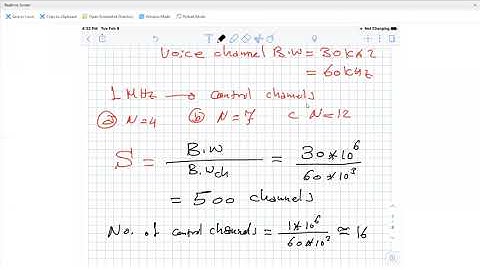 Realtime Screen
Save to Local
Copy to Clipboard
Open Extended Directory
Window Mode
Portrait Mode
4:32 PM Tue Feb 8
Not Charging
Voice channel B.W = 30 kHz
= 60 kHz
1 MHz → control channels
ⓐ N=4 ⓑ N=7 c N=12
S = B.W / B.Wch = 30*10^6 / 60*10^3
= 500 channels
No. of control channels = 1*10^6 / 60*10^3 ≃ 16